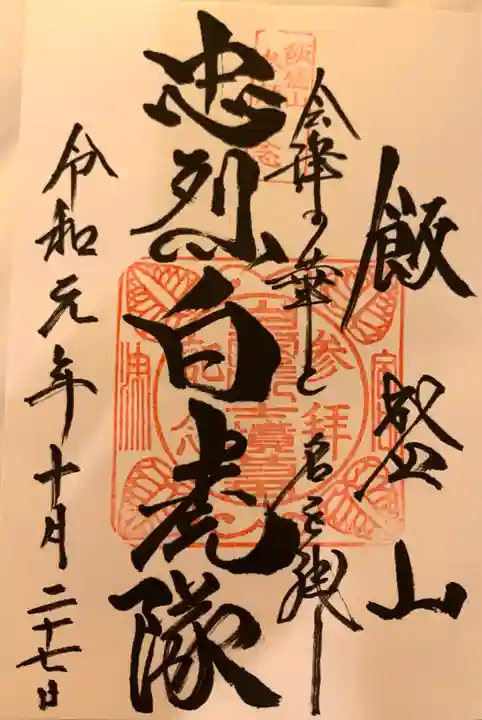 飯盛山
会津の華と
名を残し
忠烈白虎隊
令和元年十月二十七日
飯盛山
参拝
記念